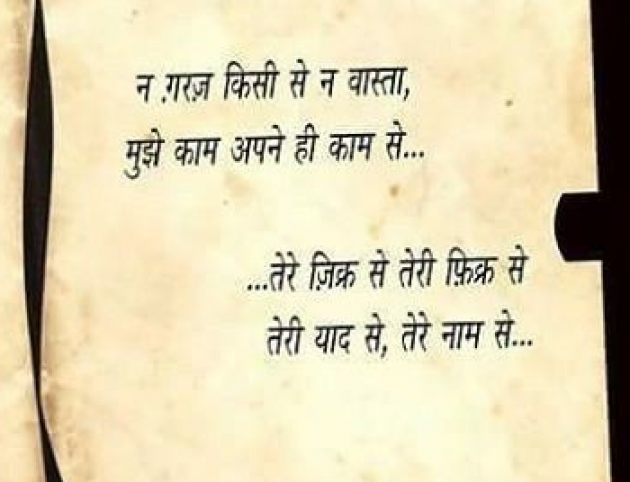 न ग़रज़ किसी से न वास्ता,
मुझे काम अपने ही काम से...
...तेरे ज़िक्र से तेरी फ़िक्र से
तेरी याद से, तेरे नाम से...